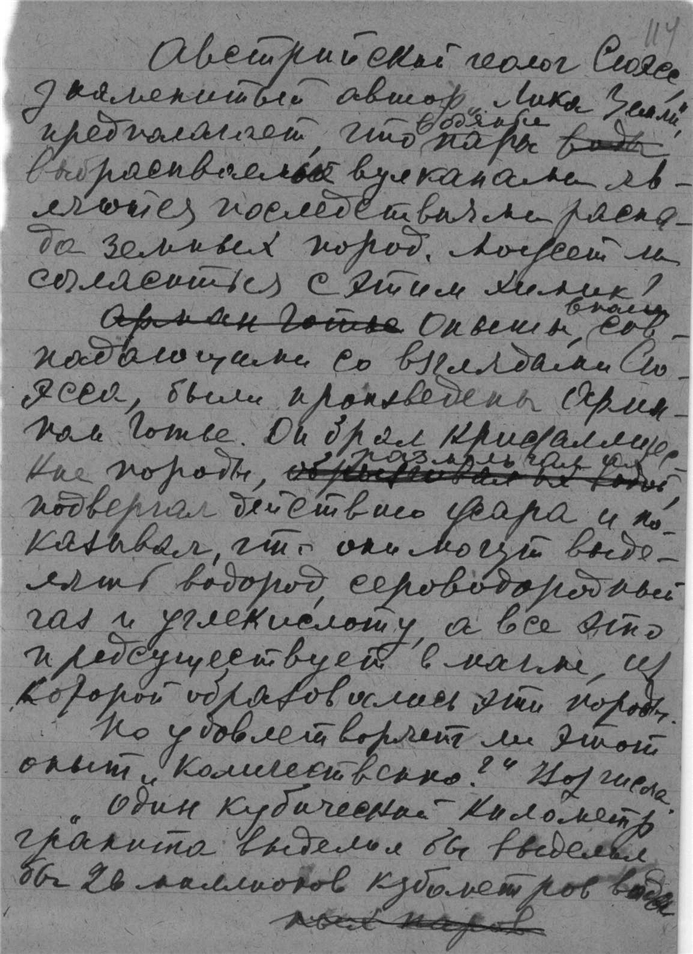 114
Австрийский геолог Сюэсс,
знаменитый автор „Лика Земли“,
предполагает, что водяные пары воды,
выбрасываемые вулканами яв-
ляются последствиями распа-
да земных пород. Может ли
согласиться с этим химик?
Арман Готье Опыты, вполне сов-
падающими со взглядами Сю-
эсса, были произведены Арма-
ном Готье. Он брал кристалличес-
кие породы, размельчал их
подвергал действию жара и по-
казывал, что они могут выде-
лять водород, сероводородный
газ и углекислоту, а все это
предсуществует в магме, из
которой образовались эти породы.
Но удовлетворяет ли этот
опыт „количественно?“ Вот числа.
„Один кубический километр
гранита выделил бы выделил
бы 26 миллионов кубометров воды
ных паров